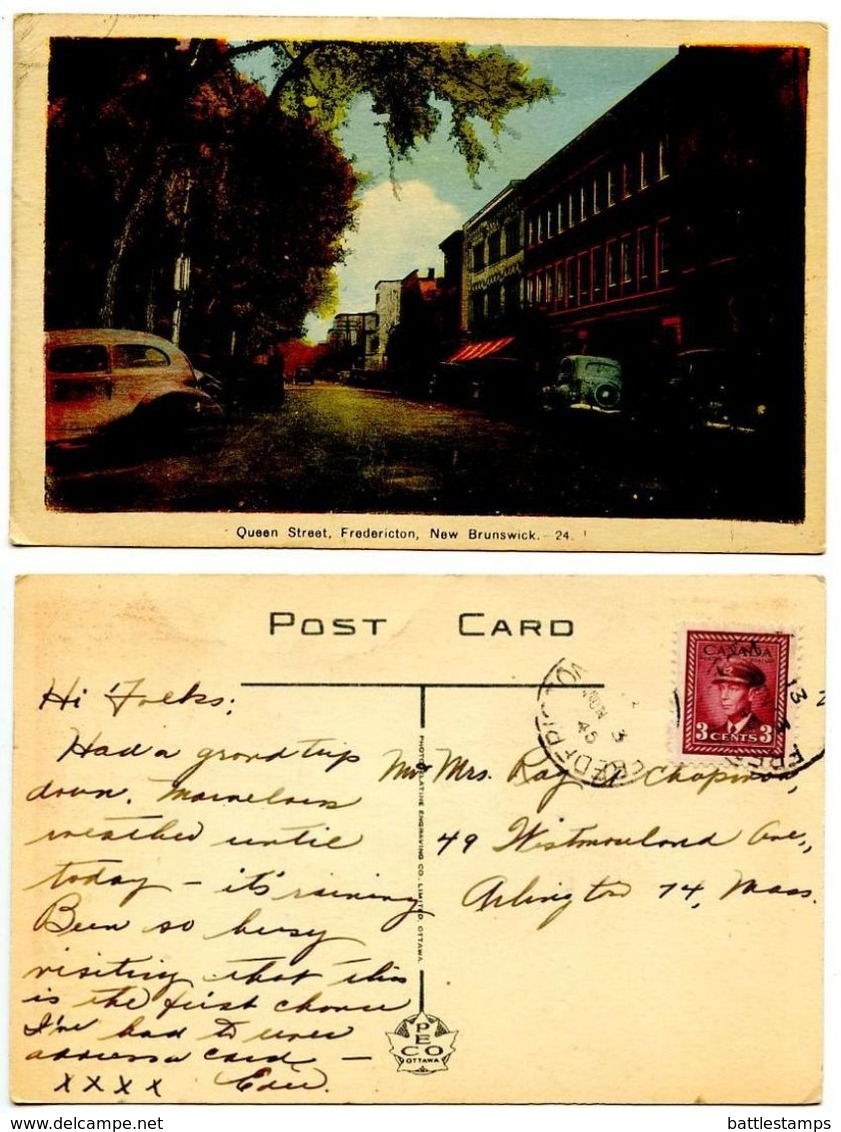 Queen Street, Fredericton, New Brunswick. - 24.
POST CARD
CANADA
3 CENTS 3
JUN 3
45
Hi Folks:
Had a grand trip
down. Marvelous
weather until
today — it's raining
Been so busy
visiting that this
is the first chance
I've had to even
address a card —
xxxx Edie.
PHOTOGELATINE ENGRAVING CO. LIMITED, OTTAWA.
Mr Mrs. Ray Chapman,
49 Westmoreland Ave.,
Arlington 74, Mass.
PECO
OTTAWA
delcampe.net
battlestamps